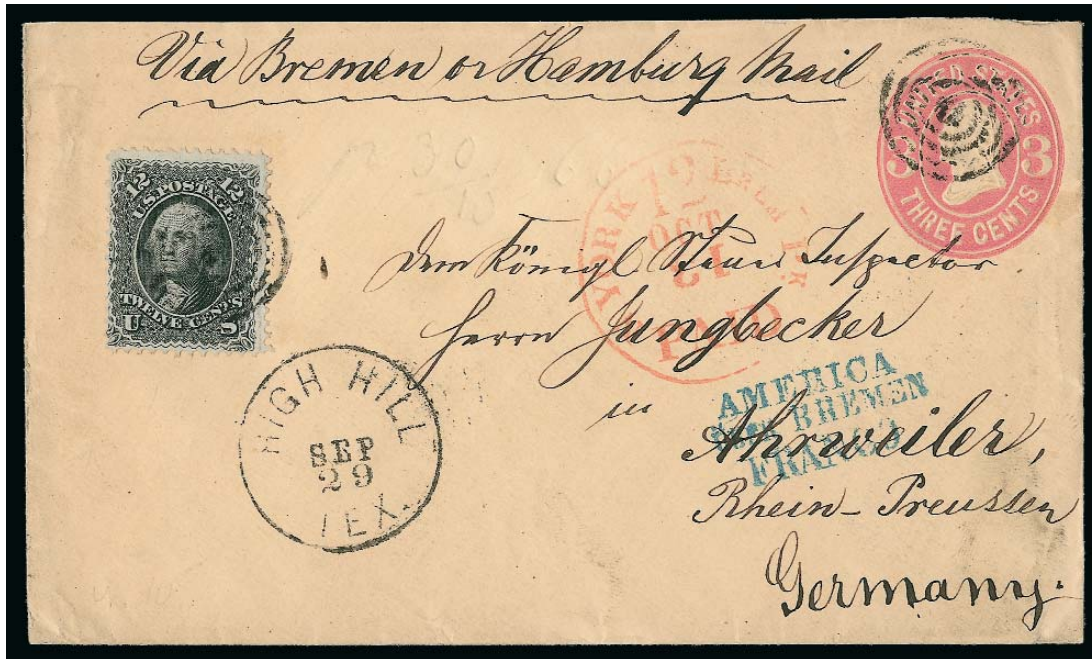 Via Bremen or Hamburg Mail
UNITED STATES
3 3
THREE CENTS
12 12
U.S. POSTAGE
TWELVE CENTS
U S
YORK
12
OCT
PAID
Dem Königl. Steuer Inspector
Herrn Jungbecker
in
AMERICA
BREMEN
FRANCO
Ahrweiler,
Rhein-Preussen
Germany.
HIGH HILL
SEP
29
TEX.